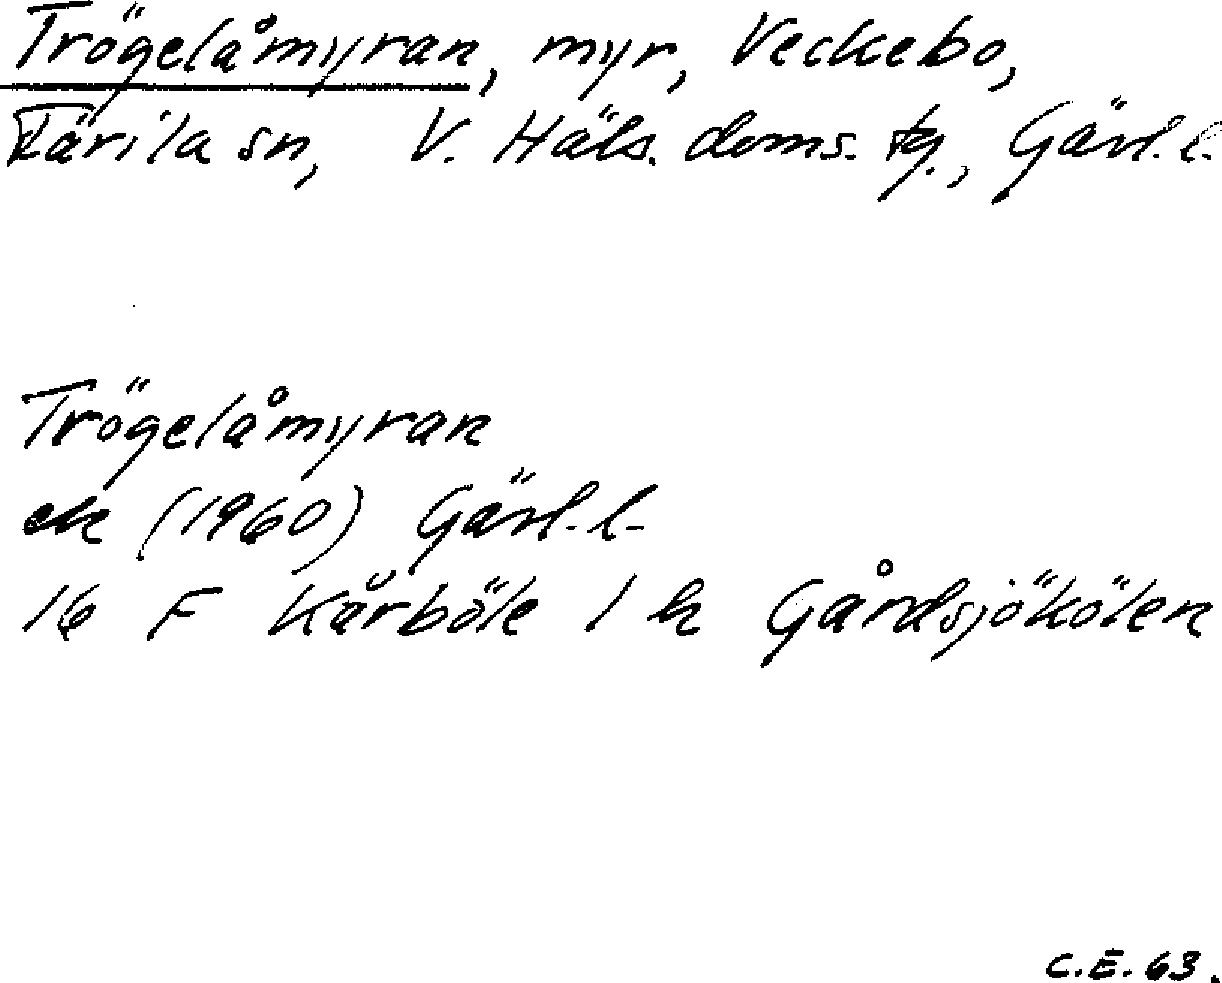 Trögelåmyran, myr, Veckebo,
Färila sn, V. Häls. doms. tg., Gävl.l.
Trögelåmyran
ek (1960) Gävl.l.
16 F Kårböle 1 h Gårdsjökölen
C.E. 63.